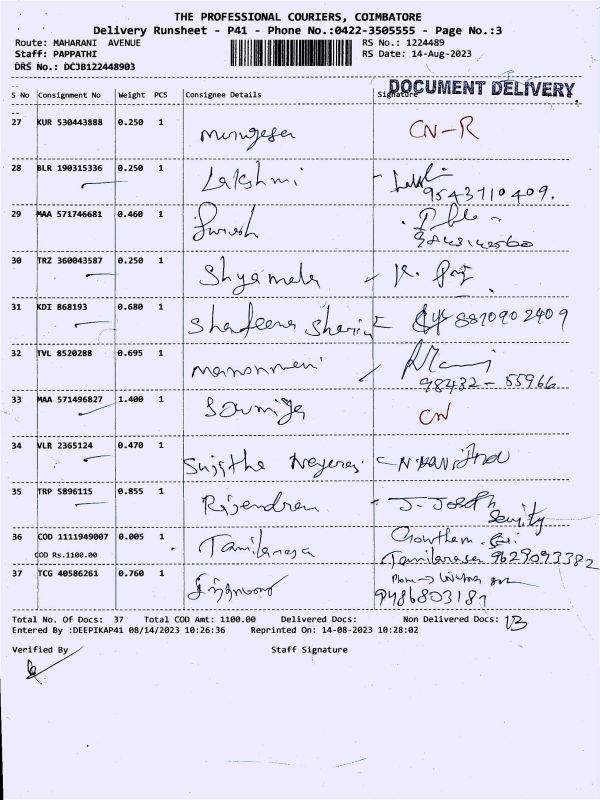 THE PROFESSIONAL COURIERS, COIMBATORE
Delivery Runsheet - P41 - Phone No.:0422-3505555 - Page No.:3
Route: MAHARANI AVENUE RS No.: 1224489
Staff: PAPPATHI RS Date: 14-Aug-2023
DRS No.: DCJB122448903
DOCUMENT DELIVERY
S No Consignment No Weight PCS Consignee Details Signature
27 KUR 530443888 0.250 1 Murugesan CN-R
28 BLR 190315336 0.250 1 Lakshmi
9543710409.
29 MAA 571746681 0.460 1 Suresh
30 TRZ 360043587 0.250 1 Shyamala
31 KDI 868193 0.680 1 Shafeena Sherin 8870902409
32 TVL 8520288 0.695 1 Manonmani Mani
98432-55966
33 MAA 571496827 1.400 1 Sowmiya CN
34 VLR 2365124 0.470 1
35 TRP 5896115 0.855 1 Rajendran J. Joseph
36 COD 1111949007 0.005 1 Tamilarasa Gowtham
COD Rs.1100.00 Tamilarasan 9629093382
37 TCG 40586261 0.760 1
9486803187
Total No. Of Docs: 37 Total COD Amt: 1100.00 Delivered Docs: Non Delivered Docs: 13
Entered By :DEEPIKAP41 08/14/2023 10:26:36 Reprinted On: 14-08-2023 10:28:02
Verified By Staff Signature